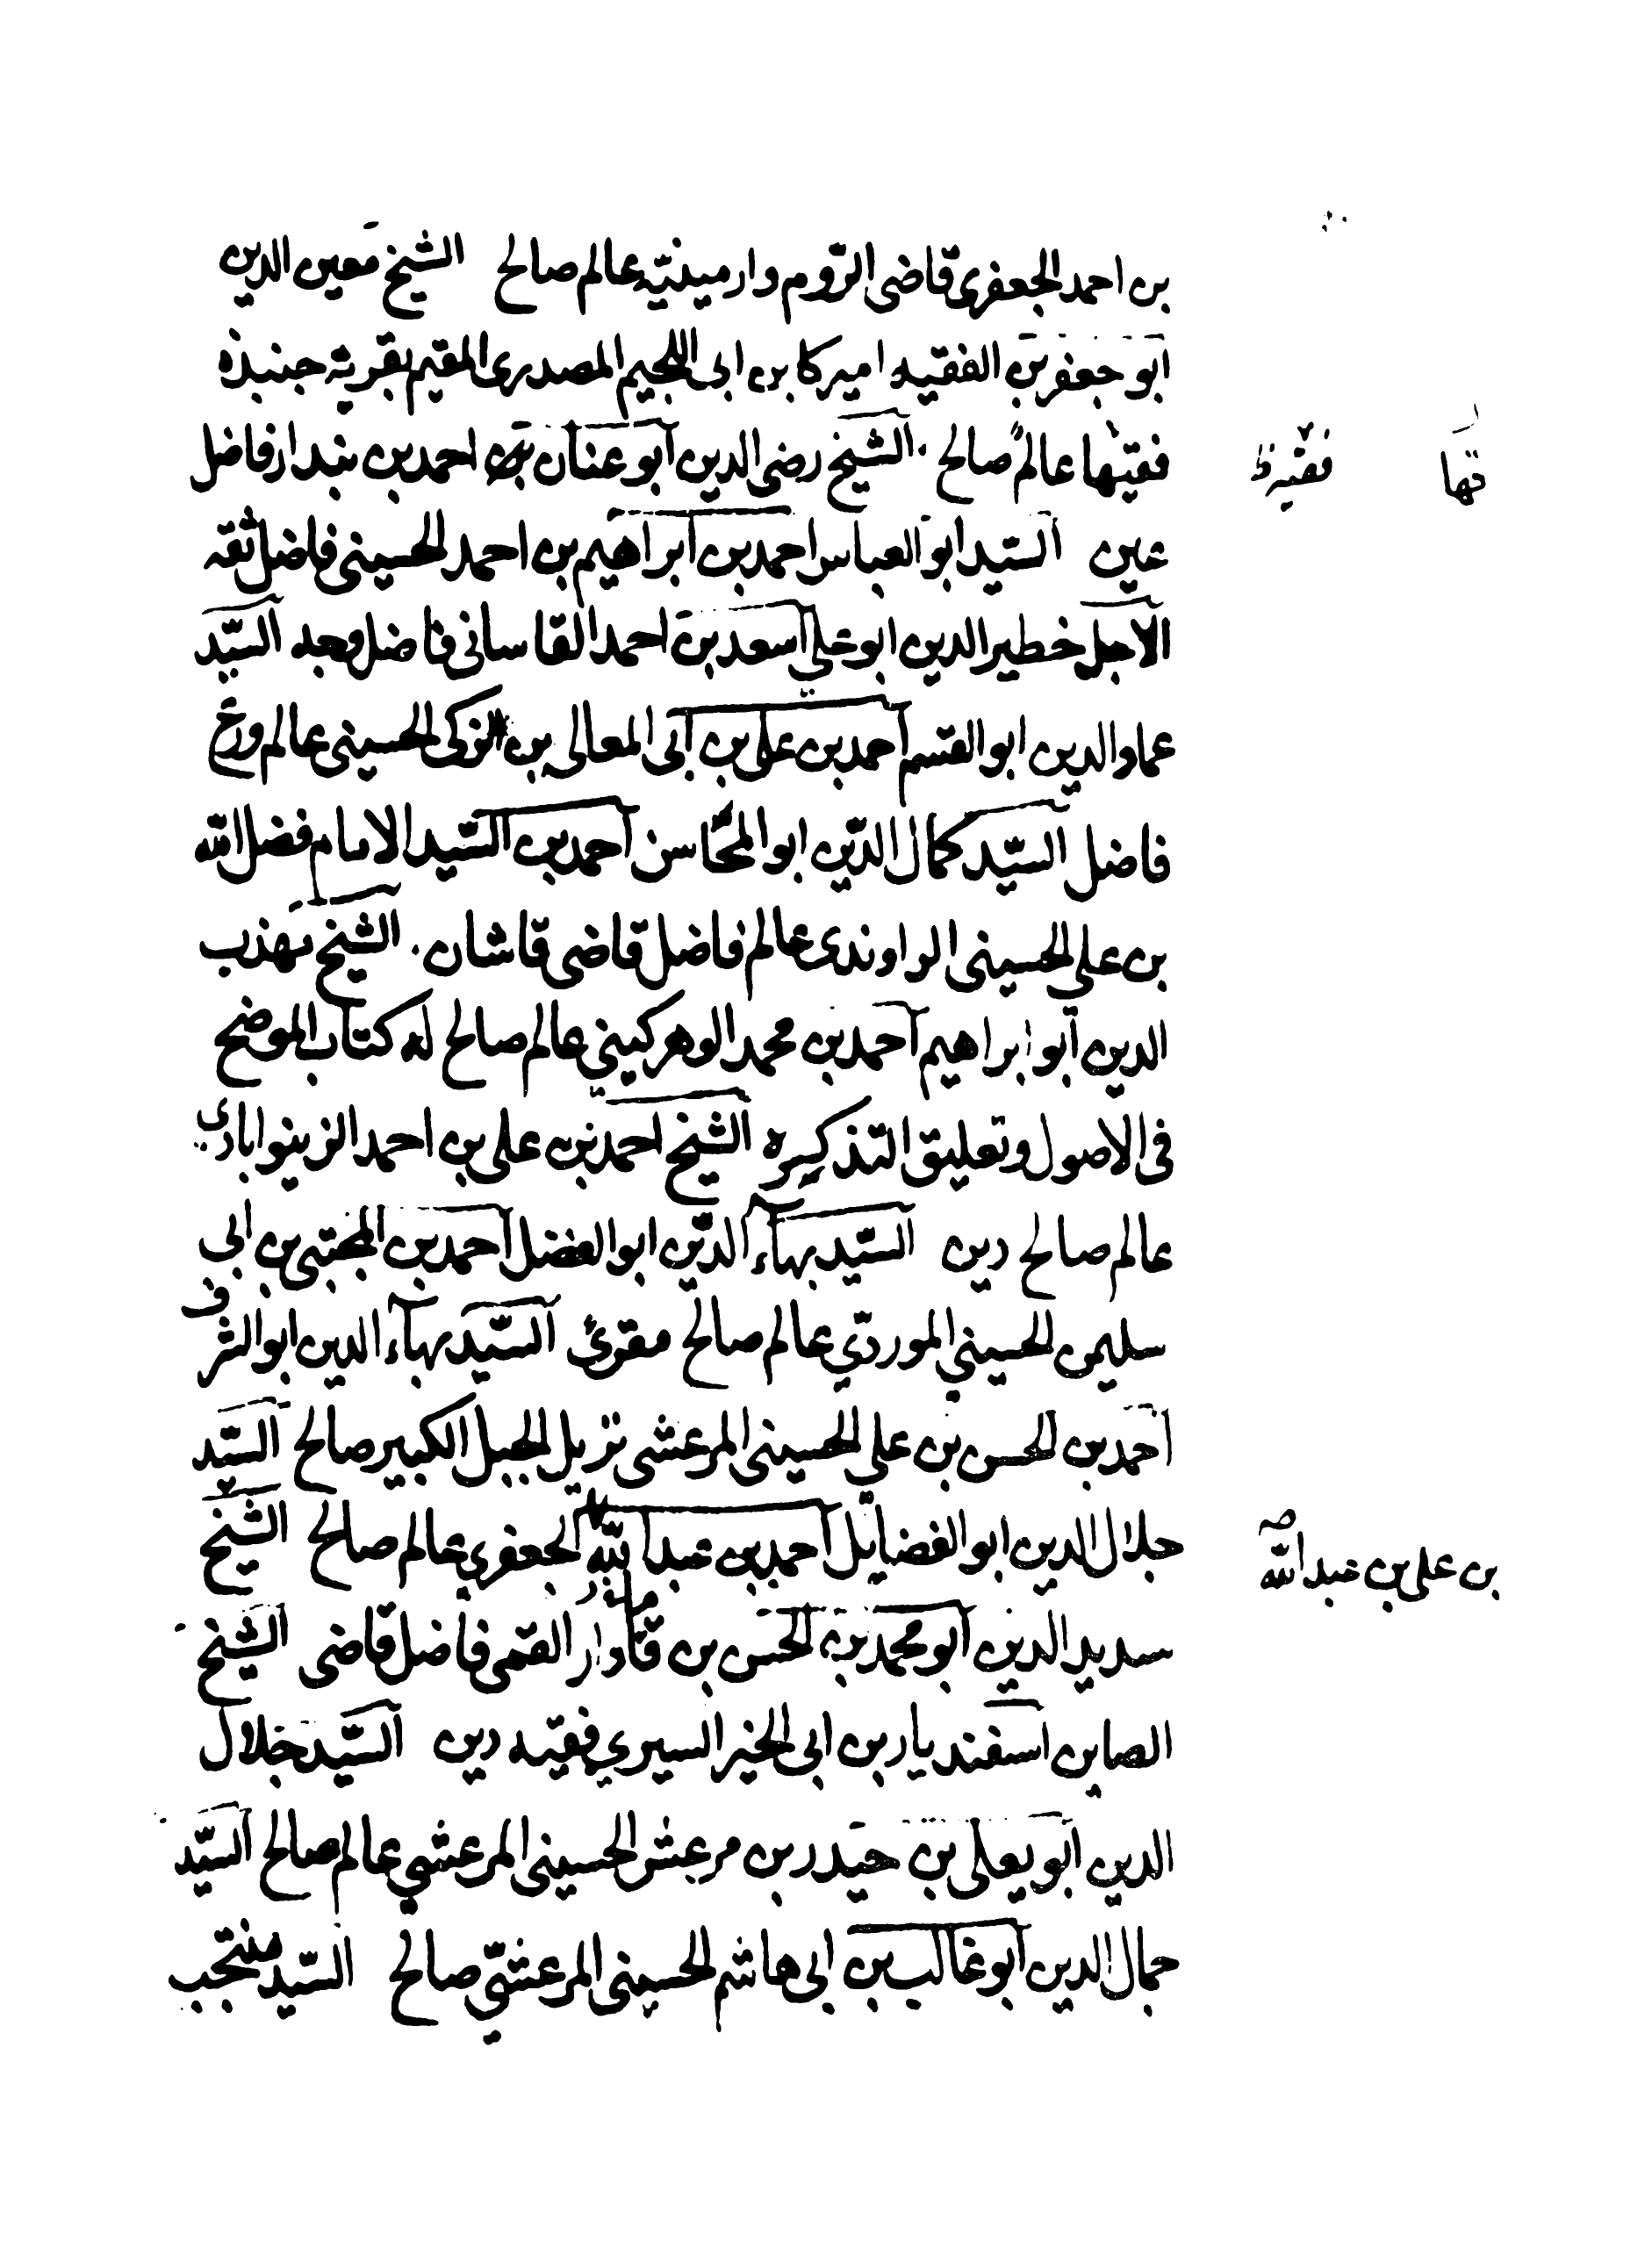 بن احمد الجعفرى قاضى الرّوم وارمينيّه عالم صالح الشيخ معين الدين
ابو جعفر بن الفقيه اميركا بن ابى اللجيم المصدرى المقيم بقرية جنبذه
فقيها عالمٌ صالح . الشيخ رضى الدين ابو عنان بن احمد بن بندار فاضل
عين السيد ابو العباس احمد بن ابراهيم بن احمد الحسينى فاضل ثقه
الاجل خطير الدين ابو على اسعد بن احمد القاسانى فاضل وجه السيّد
عماد الدين ابو القسم احمد بن على بن ابى المعالى بن الزكى الحسينى عالم ورع
فاضل السيّد كمال الدّين ابو المحاسن احمد بن السّيد الامام فضل الله
بن على الحسينى الراوندى عالم فاضل قاضى قاشان . الشيخ مهذب
الدين ابو ابراهيم احمد بن محمد الوهركينى عالم صالح له كتاب الموضح
فى الاصول وتعليق التذكيره الشيخ احمد بن على بن احمد الزينوابادى
عالم صالح دين السيّد بهآء الدّين ابو الفضل احمد بن المجتبى بن ابى
سليمن الحسيني الموردّي عالم صالح مقرئ السيّد بهآء الدين ابو الشرف
احمد بن الحسن بن علي الحسينى المرعشى نزيل الجبل الكبير صالح السيّد
جلال الدين ابو الفضايل احمد بن عبد الله الجعفري عالم صالح الشيخ
سديد الدين ابو محمد بن الحسن بن قادار القمى فاضل قاضى الشيخ
الصاين اسفنديار بن ابى الخير السيري فقيه دين السيّد جلال
الدين ابو يعلى بن حيدر بن مرعش الحسينى المرعشي عالم صالح السيّد
جمال الدين ابو غالب بن ابى هاشم الحسينى المرعشيّ صالح السيّد منتجب
فقيه ظ
تها
بن على بن عبد الله صح